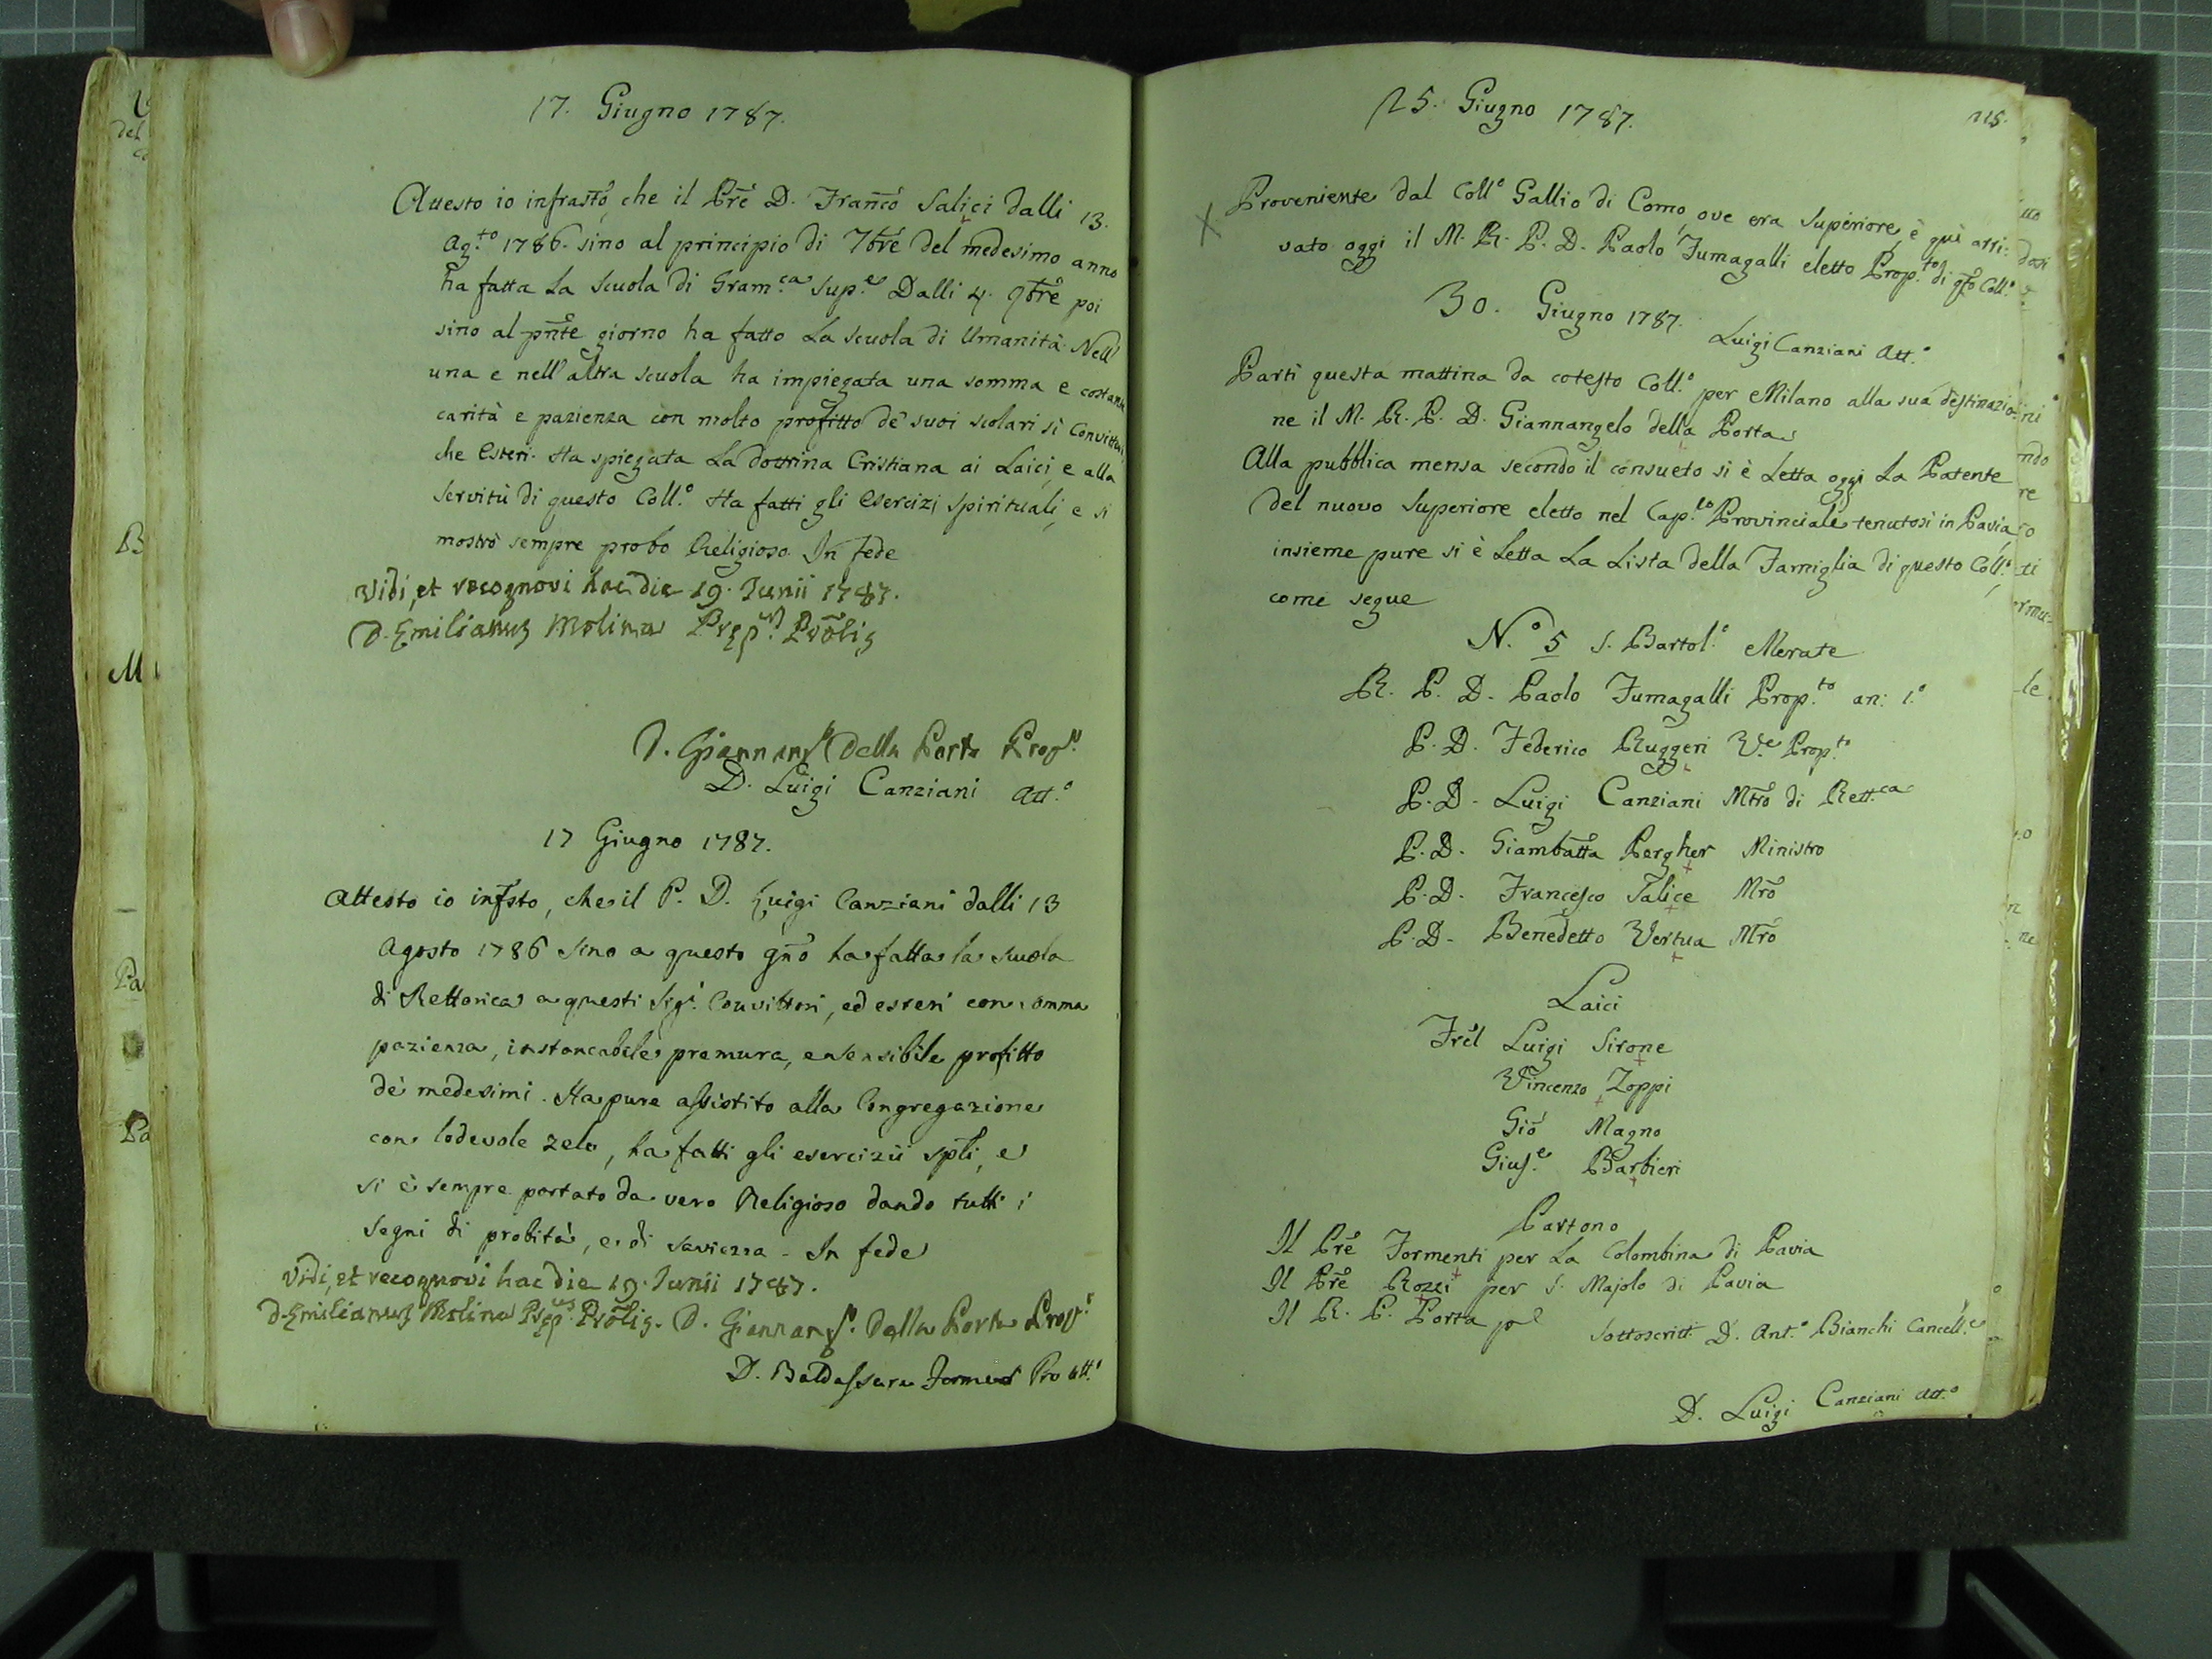 17. Giugno 1787.
Attesto io infrasto, che il Pre D. Franco Salici dalli 13.
Ag.to 1786. sino al principio di 7bre del medesimo anno
ha fatta la Scuola di Gram.ca Sup.e Dalli 4. 9bre poi
sino al pnte giorno ha fatto La scuola di Umanità. Nell'
una e nell'altra scuola ha impiegata una somma e costante
carità e pazienza con molto profitto de' suoi scolari sì Convittori,
che Esteri. Ha spiegata La Dottrina Cristiana ai Laici, e alla
Servitù di questo Coll.o Ha fatti gli Esercizj Spirituali, e si
mostrò sempre probo Religioso. In fede
Vidi, et recognovi hac die 19. Junii 1787.
D. Emilianus Molina Prep.us Prolis
D. Giannang.o Della Porta Prop.o
D. Luigi Canziani Att.o
17 Giugno 1787.
Attesto io infsto, che il P. D. Luigi Canziani dalli 13
Agosto 1786 sino a questo gno ha fatta la scuola
di Rettorica a questi Sigi. Convittori, ed esteri con somma
pazienza, instancabile premura, e sensibile profitto
de' medesimi. Ha pure assistito alla Congregazione
con lodevole zelo, ha fatti gli esercizii spli, e
si è sempre portato da vero Religioso dando tutti i
segni di probità, e di saviezza. In fede
Vidi, et recognovi hac die 19. Junii 1787.
D. Emilianus Molina Prep.us Prolis. D. Giannang.o Della Porta Prop.o
D. Baldassare Pro Att.o
25. Giugno 1787.
215.
Proveniente dal Coll.o Gallio di Como, ove era Superiore, è quì arri-
vato oggi il M. R. P. D. Paolo Fumagalli eletto Prop.to di qto Coll.o
30. Giugno 1787.
Luigi Canziani Att.o
Partì questa mattina da cotesto Coll.o per Milano alla sua destinazio-
ne il M. R. P. D. Giannangelo della Porta
Alla pubblica mensa secondo il consueto si è Letta oggi La Patente
del nuovo Superiore eletto nel Cap.lo Provinciale tenutosi in Pavia,
insieme pure si è Letta La Lista della Famiglia di questo Coll.o,
come segue
N.o 5 S. Bartol.o Merate
R. P. D. Paolo Fumagalli Prop.to an: 1.o
P. D. Federico Ruggeri V.e Prop.to
P. D. Luigi Canziani Mtro di Rett.ca
P. D. Giambatta Pergher Ministro
P. D. Francesco Salice Mro
P. D. Benedetto Vertua Mro
Laici
Frel Luigi Sirone
Vincenzo Zoppi
Gio Magno
Gius.e Barbieri
Partono
Il Pre Formenti per La Colombina di Pavia
Il Pre Rozzi per S. Majolo di Pavia
Il R. P. Porta pel
Sottoscritt. D. Ant.o Bianchi Cancell.e
D. Luigi Canziani Att.o